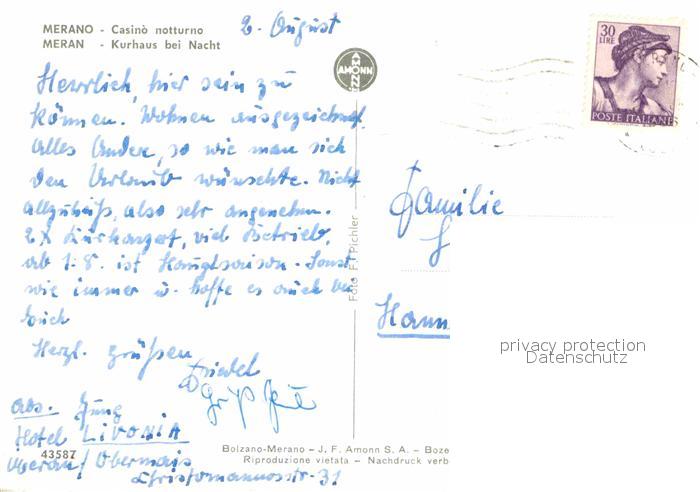 MERANO - Casinò notturno
MERAN - Kurhaus bei Nacht
2. August
AMONN
30
LIRE
POSTE ITALIANE
Herrlich, hier sein zu
können. Wohnen ausgezeichnet.
Alles Andere, so wie man sich
den Urlaub wünschte. Nicht
allzuheiß, also sehr angenehm.
2x Kurkonzert, viel Betrieb,
ab 1.8. ist Hauptsaison. Sonst
wie immer u. hoffe es auch bei
Euch
Herzl. Grüßen
Friedel
Familie
Hann
Foto F. Pichler
privacy protection
Datenschutz
Abs. Jung
Hotel LIVONIA
43587
Obermais
Christomannosstr. 31
Bolzano-Merano - J. F. Amonn S. A. - Boze
Riproduzione vietata - Nachdruck verb